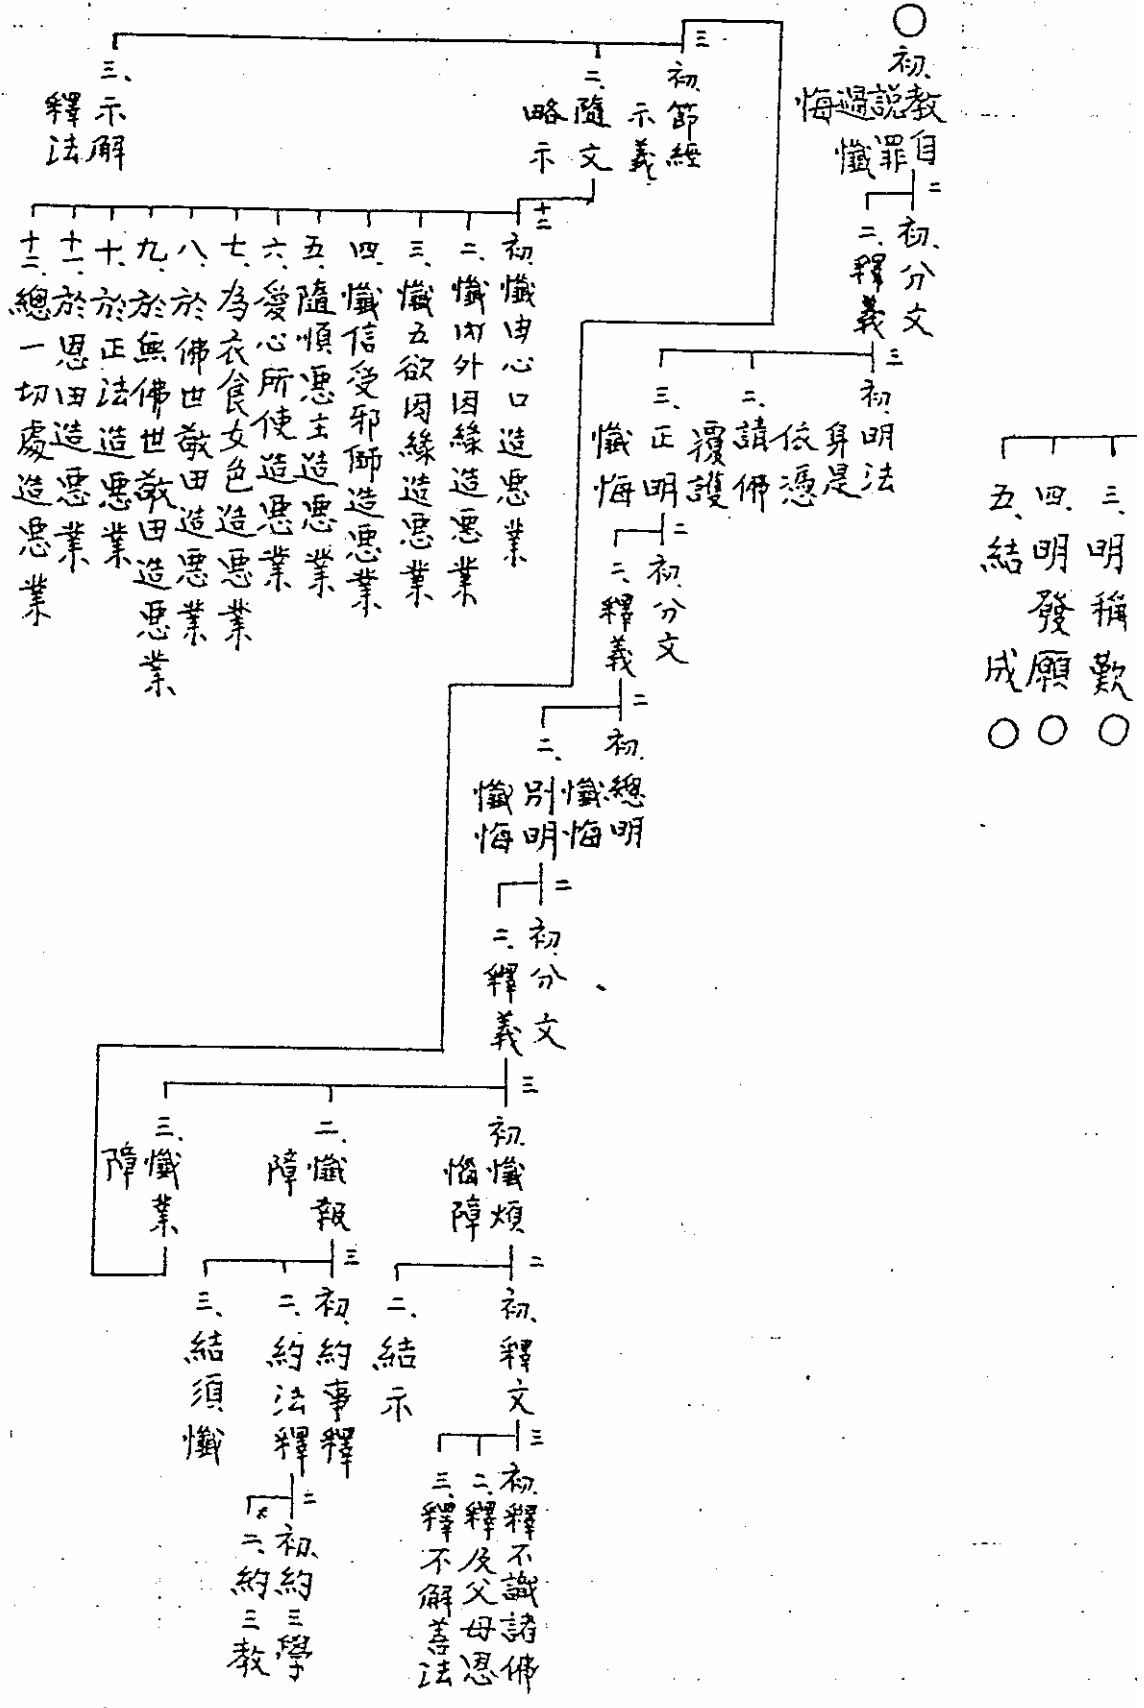 三、明稱歎○
四、明發願○
五、結成○
○初、教自說罪過懺悔
二
初、分文
二、釋義
三
初、明法身是依憑
二、請佛覆護
三、正明懺悔
二
初、分文
二、釋義
二
初、總明懺悔
二、別明懺悔
二
初、分文
二、釋義
三
初、懺煩惱障
二
初、釋文
三
初、釋不識諸佛
二、釋及父母恩
三、釋不解善法
二、結示
二、懺報障
三
初、約事釋
二、約法釋
二
初、約三學
二、約三教
三、結須懺
三、懺業障
三
初、節經示義
二、隨文略示
十二
初、懺由心口造惡業
二、懺內外因緣造惡業
三、懺五欲因緣造惡業
四、懺信受邪師造惡業
五、隨順惡主造惡業
六、愛心所使造惡業
七、為衣食女色造惡業
八、於佛世敬田造惡業
九、於無佛世敬田造惡業
十、於正法造惡業
十一、於恩田造惡業
十二、總一切處造惡業
三、示解釋法